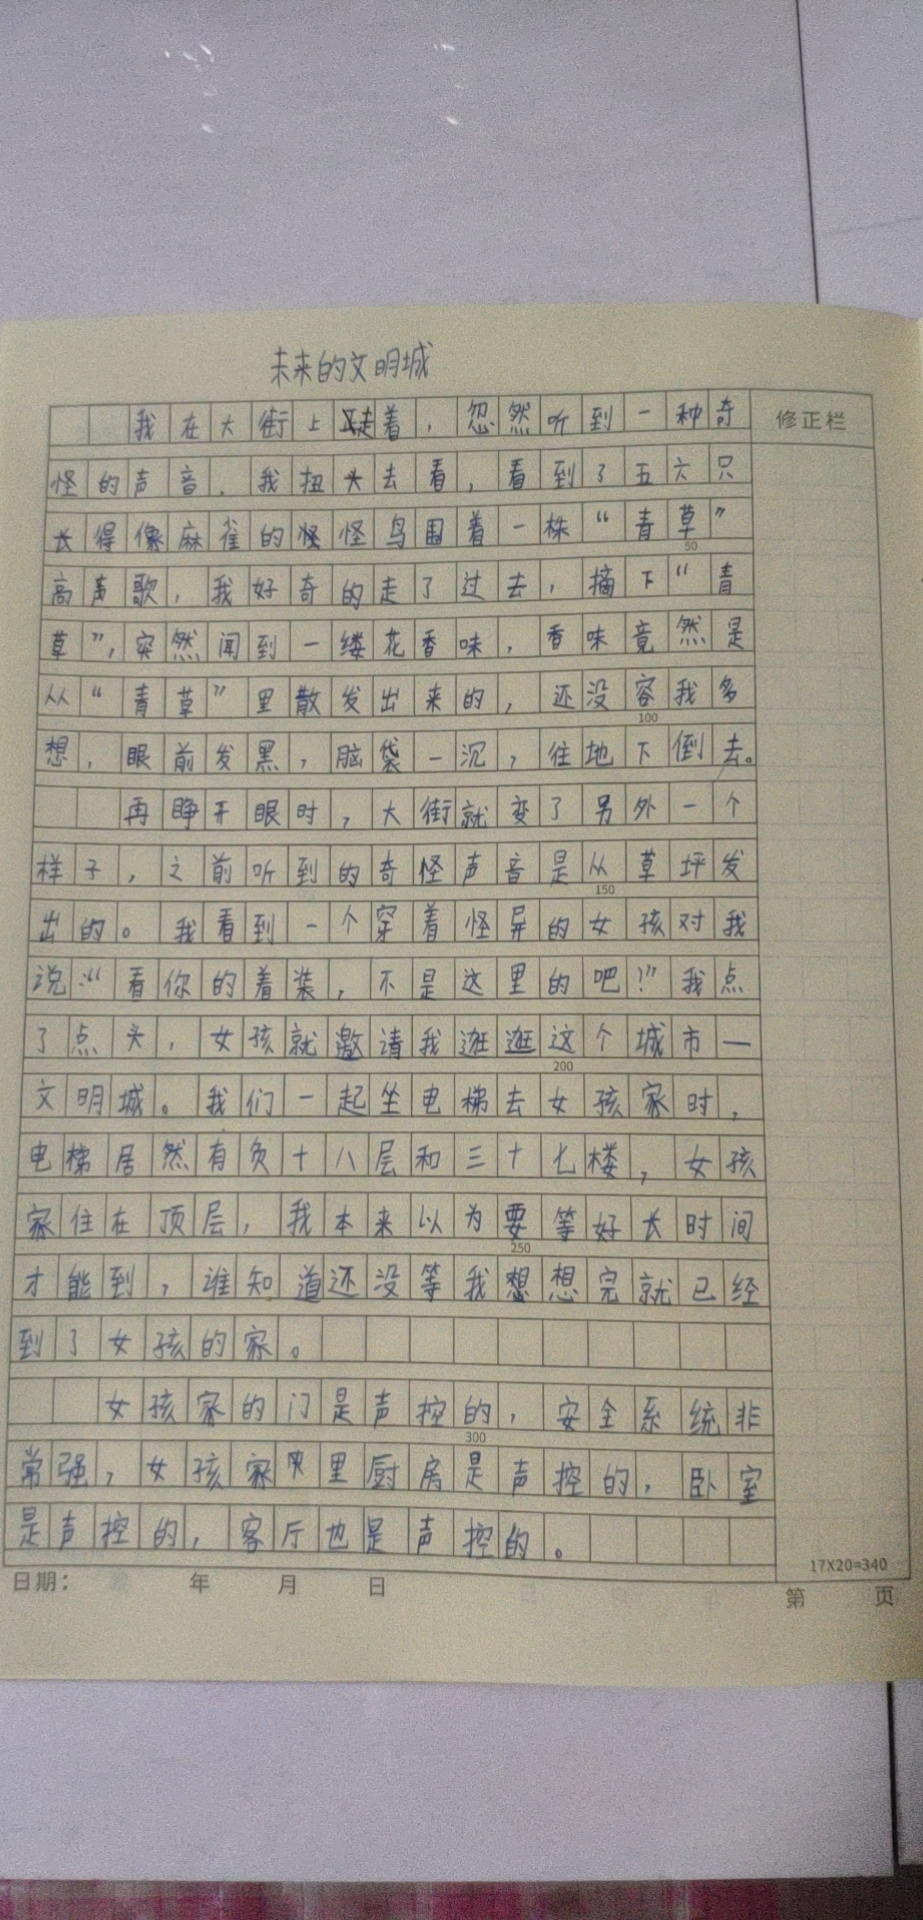 未来的文明城
我在大街上走着，忽然听到一种奇
修正栏
怪的声音．我扭头去看，看到了五六只
长得像麻雀的怪鸟围着一株“青草”
50
高声歌，我好奇的走了过去，摘下“青
草”，突然闻到一缕花香味，香味竟然是
从“青草”里散发出来的，还没容我多
100
想，眼前发黑，脑袋一沉，往地下倒去。
再睁开眼时，大街就变了另外一个
样子，之前听到的奇怪声音是从草坪发
150
出的。我看到一个穿着怪异的女孩对我
说：“看你的着装，不是这里的吧！”我点
了点头，女孩就邀请我逛逛这个城市—
200
文明城。我们一起坐电梯去女孩家时，
电梯居然有负十八层和三十七楼，女孩
家住在顶层，我本来以为要等好长时间
250
才能到，谁知道还没等我想想完就已经
到了女孩的家。
女孩家的门是声控的，安全系统非
300
常强，女孩家里厨房是声控的，卧室
是声控的，客厅也是声控的。
17X20=340
日期： 年 月 日
第 页